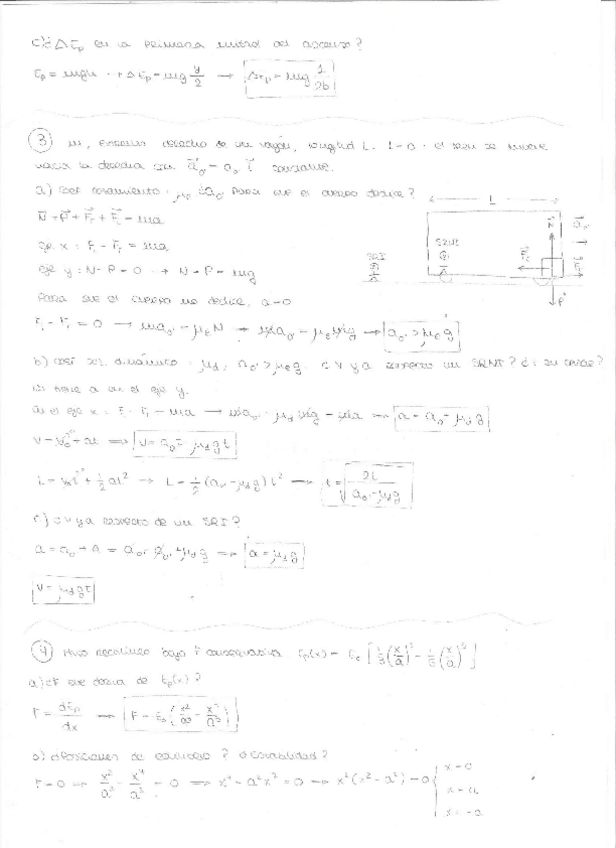 c) ¿Δ Ep en la primera mitad del ascenso?
Ep = mgh → ΔEp = mg y/2 → ΔEp = mg 1/2b
③ m, extremo derecho de un vagón, longitud L. t=0. el tren se mueve
hacia la derecha con a⃗o' = ao' i⃗ constante.
a) coef rozamiento: μe ¿ao' para que el cuerpo deslice?
N⃗ + P⃗ + F⃗r + F⃗i = ma
eje x: Fi - Fr = ma
eje y: N - P = 0 → N = P = mg
Para que el cuerpo no deslice, a = 0
Fi - Fr = 0 → mao' = μeN → mao' = μe mg → ao' > μe g
L
SRI
SRNI
N⃗
P⃗
b) coef roz. dinámico: μd, ao' > μeg. ¿v y a respecto un SRNI? ¿t
No tiene a en el eje y.
En el eje x: Fi - Fr = ma → mao' - μd mg = ma ⇒ a = ao' - μd g
v = vo + at ⇒ v = ao' - μd g t
L = vot + 1/2 at² → L = 1/2 (ao' - μdg) t² → t = √(2L / (ao' - μdg))
c) ¿v y a respecto de un SRI?
a = μd g
v = μd g t
④ bajo F conservativa Ep(x) = Eo [1/3 (x/a)³ - 1/5 (x/a)⁵]
a) ¿F que deriva de Ep(x)?
F = dEp/dx → F = Eo (x²/a³ - x⁴/a⁵)
b) ¿Posiciones de equilibrio? ¿Estabilidad?
F = 0 → x²/a³ - x⁴/a⁵ = 0 ⇒ x⁴ - a²x² = 0 → x²(x² - a²) = 0 { x = 0
x = a
x = -a